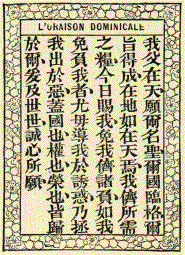 L'ORAISON DOMINICALE
我父在天願爾名聖爾國臨格爾
旨得成在地如在天焉我儕所需
之糧今日賜我免我儕諸負如我
免負我者尤毋導我於誘惑乃拯
我出於惡蓋國也權也榮也皆歸
於爾爰及世世誠心所願